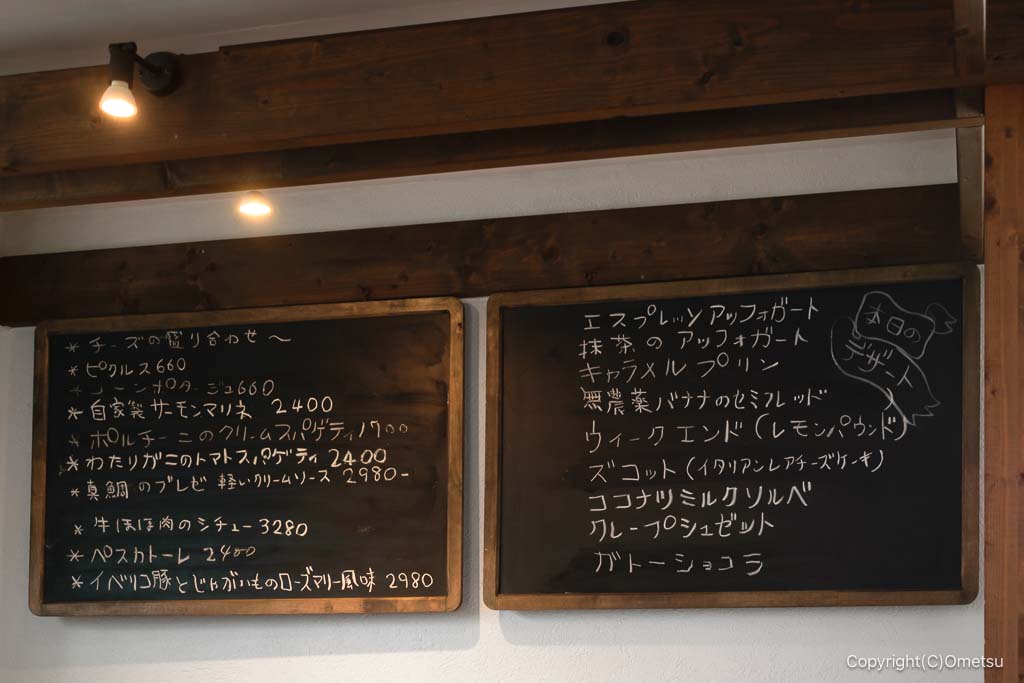 ＊チーズの盛り合わせ〜
＊ピクルス660
＊コーンポタージュ660
＊自家製サーモンマリネ 2400
＊ポルチーニのクリームスパゲティ1700
＊わたりガニのトマトスパゲティ 2400
＊真鯛のブレゼ 軽いクリームソース 2980-
＊牛ほほ肉のシチュー3280
＊ペスカトーレ 2400
＊イベリコ豚とじゃがいものローズマリー風味 2980
本日の
デザート
エスプレッソアッフォガート
抹茶のアッフォガート
キャラメルプリン
無農薬バナナのセミフレッド
ウィークエンド(レモンパウンド)
ズコット(イタリアンレアチーズケーキ)
ココナツミルクソルベ
クレープシュゼット
ガトーショコラ
Copyright(C)Ometsu